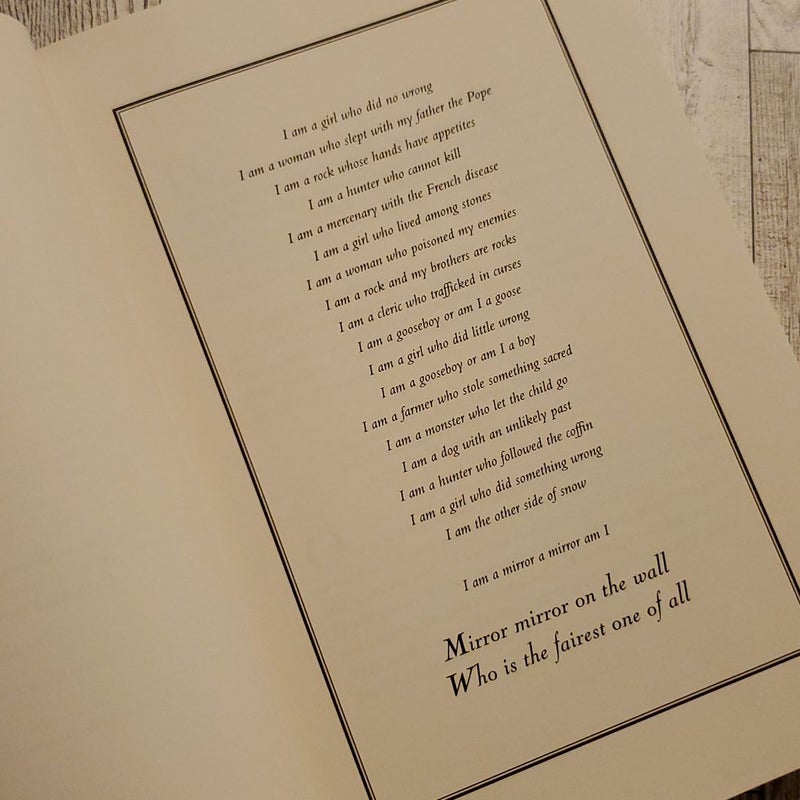 I am a girl who did no wrong
I am a woman who slept with my father the Pope
I am a rock whose hands have appetites
I am a hunter who cannot kill
I am a mercenary with the French disease
I am a girl who lived among stones
I am a woman who poisoned my enemies
I am a rock and my brothers are rocks
I am a cleric who trafficked in curses
I am a gooseboy or am I a goose
I am a girl who did little wrong
I am a gooseboy or am I a boy
I am a farmer who stole something sacred
I am a monster who let the child go
I am a dog with an unlikely past
I am a hunter who followed the coffin
I am a girl who did something wrong
I am the other side of snow
I am a mirror a mirror am I
Mirror mirror on the wall
Who is the fairest one of all